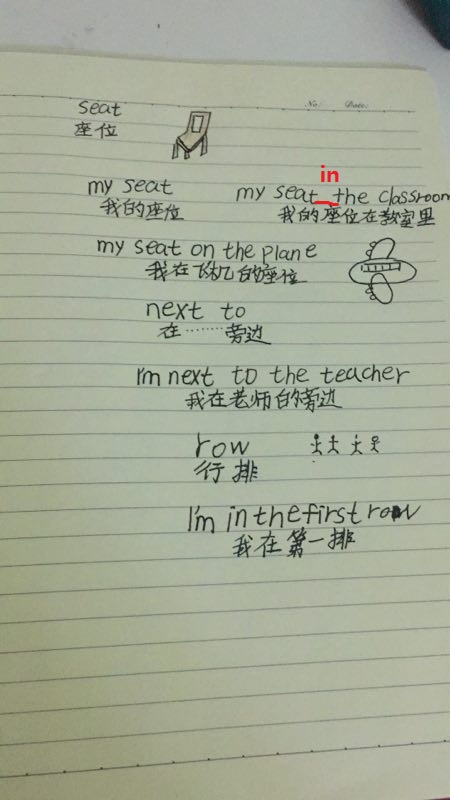 No: Date:
seat
座位
my seat
我的座位
in
my seat the classroom
我的座位在教室里
my seat on the plane
我在飞机的座位
next to
在………旁边
I'm next to the teacher
我在老师的旁边
row
行排
I'm in the first row
我在第一排